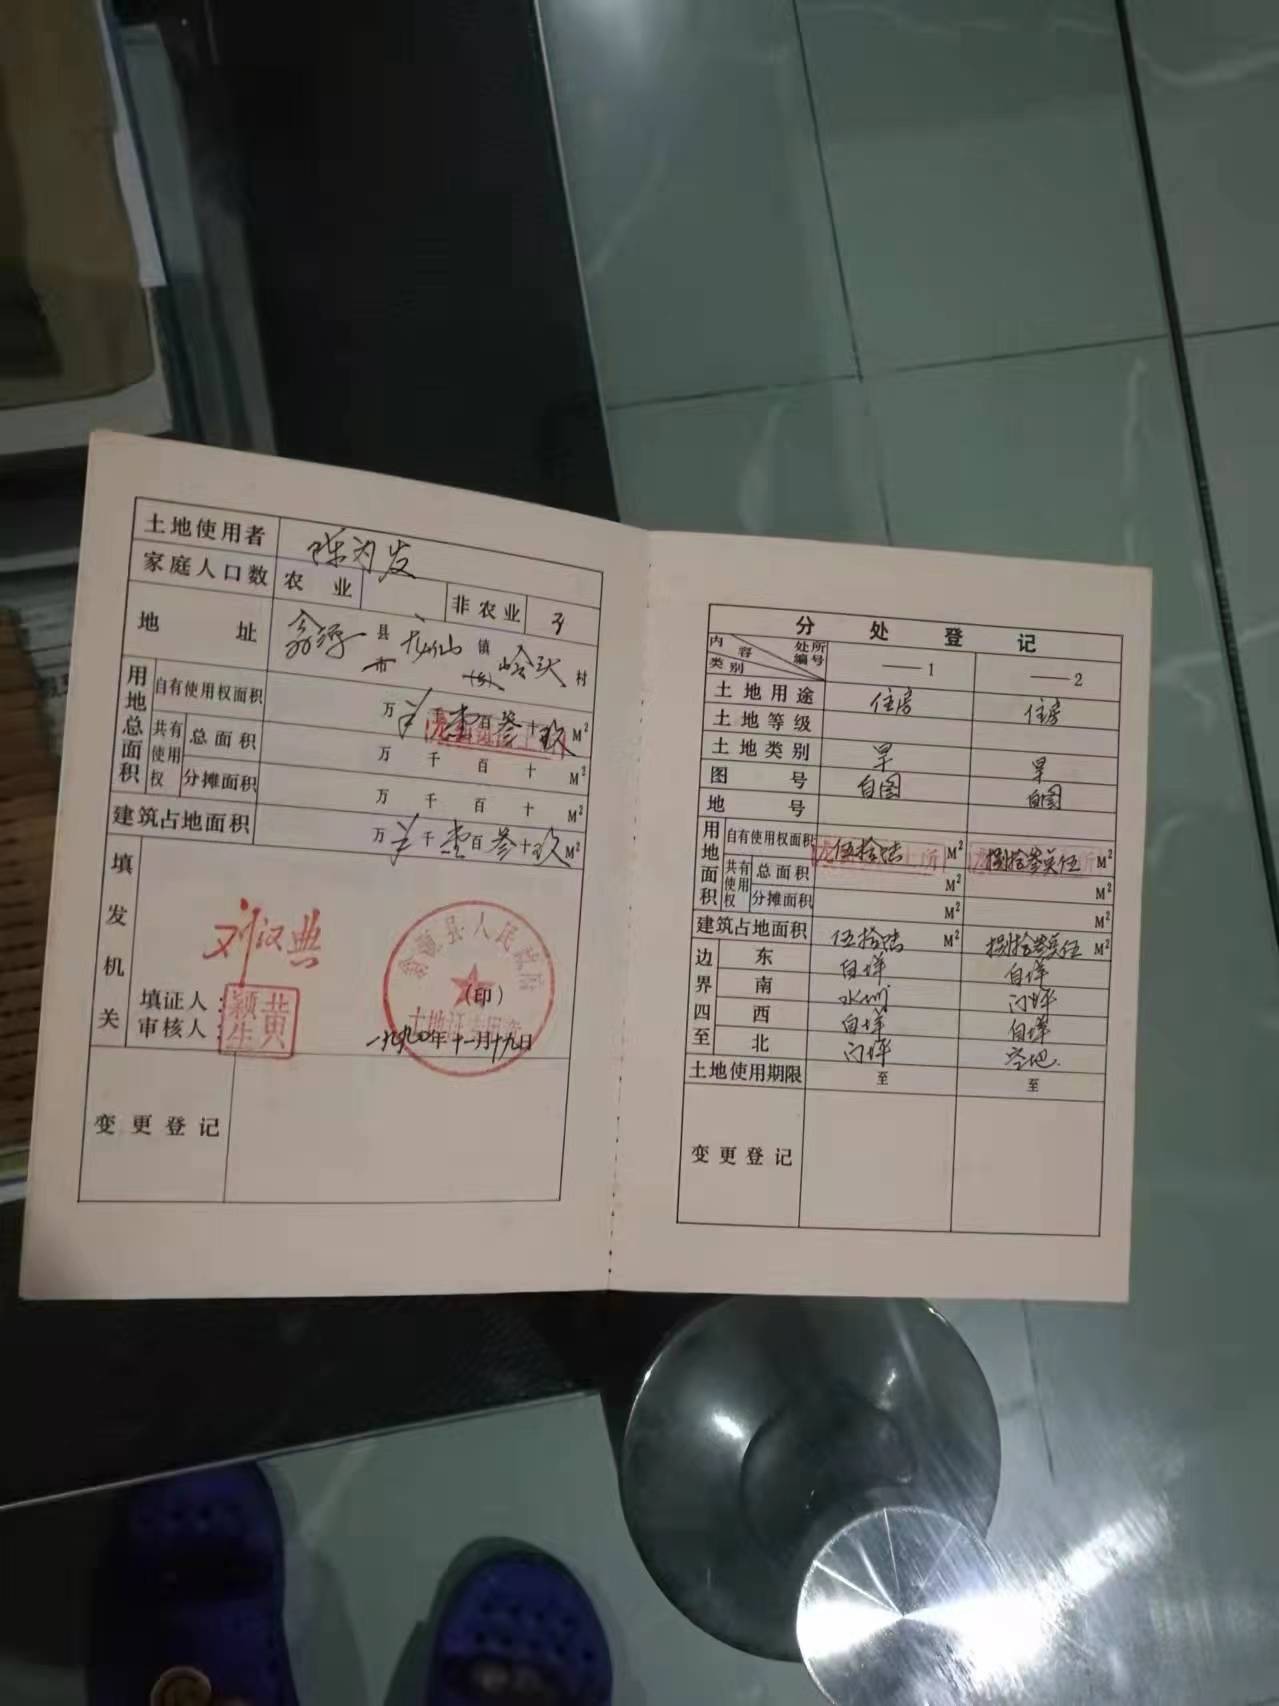 土地使用者 陈为发
家庭人口数 农业 非农业 3
地址 翁源县市 龙仙镇(乡) 岭头村
用地总面积
自有使用权面积 万 千壹百叁十玖M²
共有使用权 总面积 万 千 百 十 M²
分摊面积 万 千 百 十 M²
建筑占地面积 万 千壹百叁十玖M²
填发机关
刘汉典
翁源县人民政府
土地证专用章
(印)
填证人:
审核人:
黄颖生
一九九〇年十一月十九日
变更登记
分处登记
内容 处所编号
类别 ——1 ——2
土地用途 住房 住房
土地等级
土地类别 旱 旱
图号 自图 自图
地号
用地面积
自有使用权面积 伍拾陆M² 捌拾叁点伍M²
共有使用权 总面积 M² M²
分摊面积 M² M²
建筑占地面积 伍拾陆M² 捌拾叁点伍M²
边界四至
东 自墙 自墙
南 水圳 门坪
西 自墙 自墙
北 门坪 空地
土地使用期限 至 至
变更登记